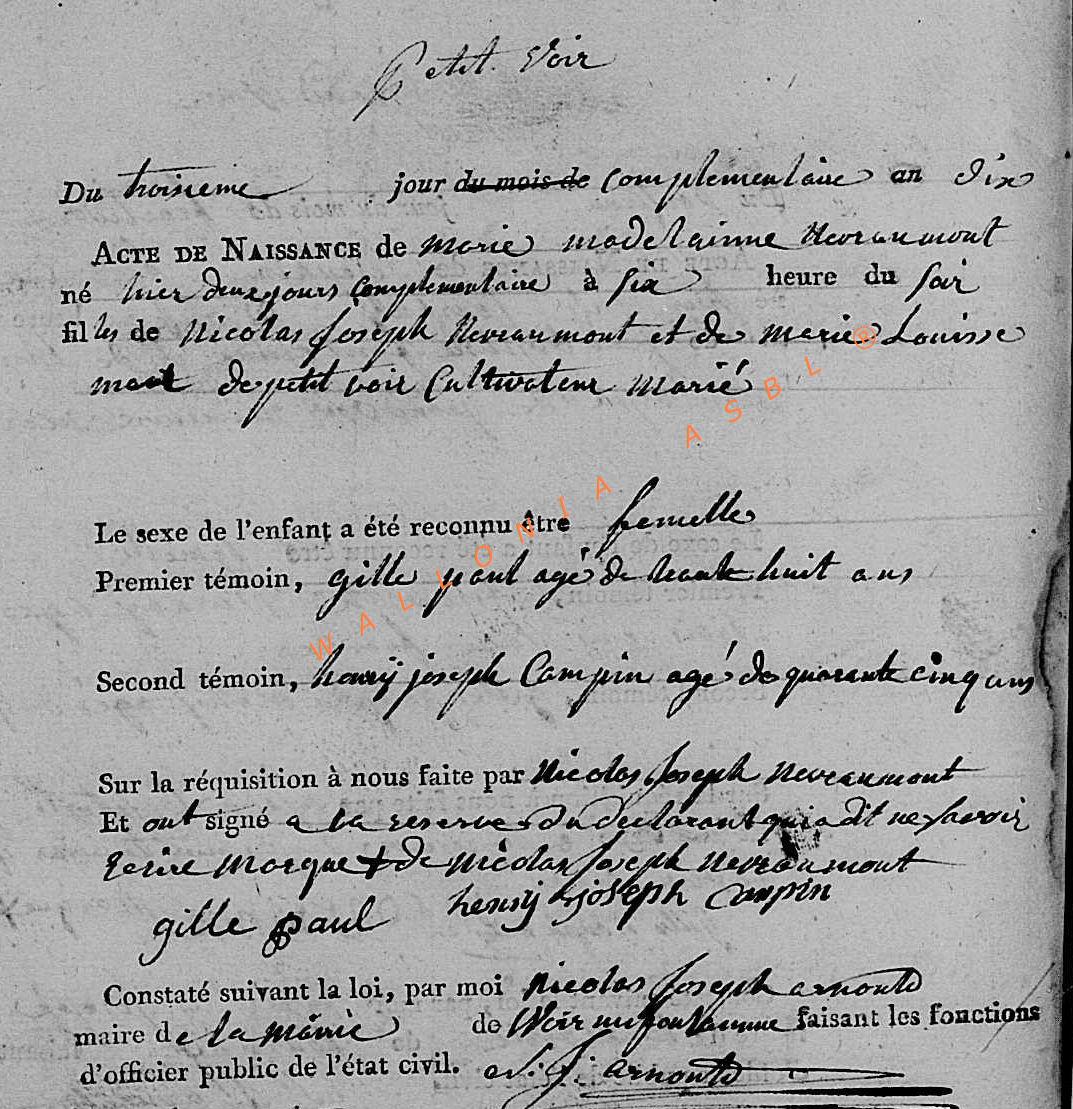 Petit Voir
Du troisieme jour du mois de complementaire an dix
ACTE DE NAISSANCE de marie madelainne Nevraumont
né hier deux jours complementaire à six heure du soir
filles de Nicolas Joseph Nevraumont et de marie Louisse
de petit voir Cultivateur marié
Le sexe de l'enfant a été reconnu être femelle
Premier témoin, gille paul agé de trante huit ans
Second témoin, henrÿ joseph Campin agé de quarante cinq ans
Sur la réquisition à nous faite par Nicolas Joseph Nevraumont
Et ont signé a la reserve du declarant qui a dit ne savoir
Ecrire marque + de Nicolas Joseph Nevraumont
gille paul henrÿ joseph Campin
Constaté suivant la loi, par moi Nicolas Joseph arnould
maire de la mairie de faisant les fonctions
d'officier public de l'état civil. N. J. arnould
WALLONIA ASBL ®